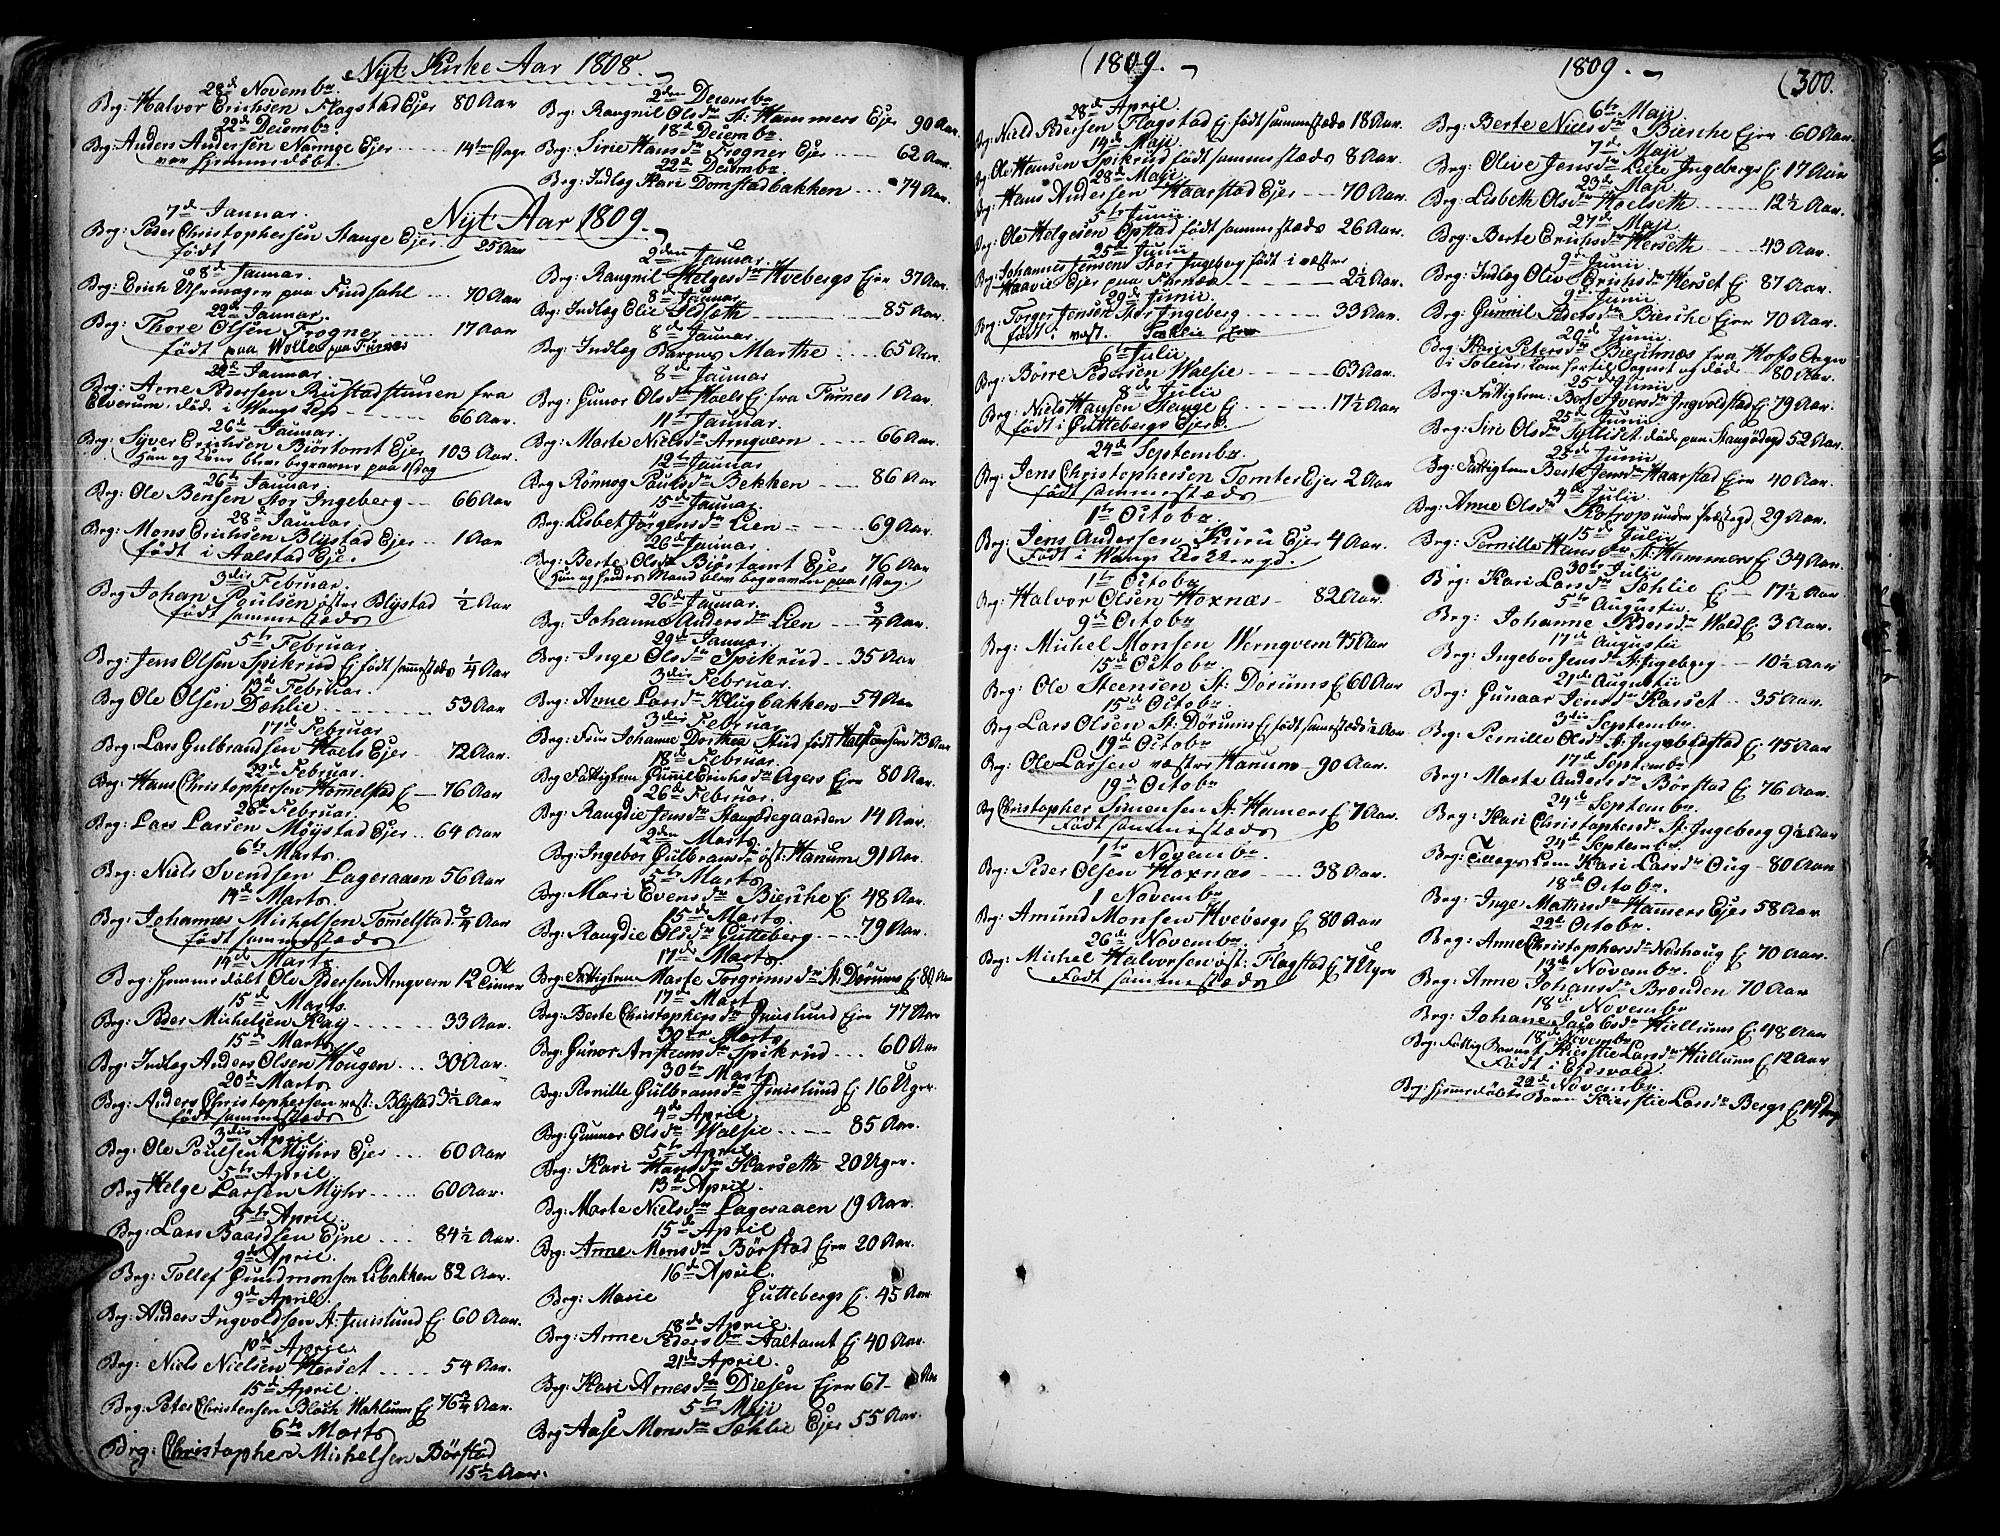 Nyt Kirke Aar 1808.
28de Novembr
Brg: Halvor Erichsen Flagstad Ejer 80 Aar
22de Decembr
Brg: Anders Andersen Ejer 14ten Dage
var hjemmedøbt.
2den Decembr
Brg: Rangnil Olsdr St: Hammers Ejer 90 Aar.
18de Decembr
Brg: Sirie Hansdr Frogner Ejer 62 Aar.
22de Decembr
Brg: Indlæg Kari Domstadbakken 74 Aar.
Nyt Aar 1809.
7de Januar.
Brg: Peder Christophersen Stange Ejer 25 Aar
født
8de Januar.
Brg: Erich Uhrmager paa Findsahl 70 Aar
22de Januar.
Brg: Thore Olsen Frogner 17 Aar
født paa Wolle paa Furnæs
22de Januar.
Brg: Arne Pedersen Rustadstuen fra
Elverum, døde i Wangs 66 Aar.
26de Januar.
Brg: Syver Erichsen Biørtomt Ejer 103 Aar.
Han og Kone blev begravne paa 1 dag
26de Januar.
Brg: Ole Bensen Stor Ingeberg 66 Aar
28de Januar
Brg: Mons Erichsen Blystad Ejer 1 Aar
født i Aalstad Ejer
3die Februar.
Brg Johan Poulsen øster Blystad ½ Aar
født sammesteds
5te Februar.
Brg: Jens Olsen Spikrud Ej født sammesteds ¼ Aar
13de Februar.
Brg Ole Olsen Dæhlie 53 Aar
17de Februar
Brg: Lars Gulbrandsen Hoels Ejer 72 Aar.
22de Februar.
Brg: Hans Christophersen Tommelstad Ej 76 Aar
26de Februar.
Brg: Lars Larsen Møystad Ejer 64 Aar
6te Marts.
Brg: Niels Svendsen Lageraaen 56 Aar
14de Marts
Brg: Johannes Michelsen Tommelstad ¾ Aar
født sammesteds
14de Marts
Brg: hjemmedøbt Ole Pedersen Arnqvern 12 Timer
15de Marts.
Brg: Peder Michelsen Kay 33 Aar.
15de Marts
Brg: Indlæg Anders Olsen Hougen 30 Aar.
20de Marts
Brg: Anders Christophersen vest: Blystad 3½ Aar
født sammesteds
3die April.
Brg: Ole Poulsen Myhrs Ejer 60 Aar
5te April.
Brg Helge Larsen Myhr 60 Aar.
5te April
Brg: Lars Baardsen Ejne 84½ Aar.
9de April.
Brg: Tollef Gundmonsen Libakken 82 Aar.
9de April.
Brg: Anders Ingvoldsen St: Imislund Ej 60 Aar.
10de April.
Brg: Niels Nielsen Herset 54 Aar.
15de April.
Brg: Peter Christensen Bloch Hoklums Ej 76¾ Aar.
6te Marts
Brg: Christopher Michelsen Børstad
15½ Aar.
2den Januar.
Brg: Rangnil Helgesdr Hvebergs Ejer 37 Aar.
8de Januar
Brg: Indlæg Elie Ildseth 85 Aar.
8de Januar.
Brg: Indlæg Marthe 65 Aar.
8de Januar
Brg: Gunor Olsdr Hoels Ej fra Furnes 1 Aar.
11te Januar
Brg: Marte Nielsdr Arnqvern 66 Aar.
12te Januar
Brg Rønnog Poulsdr Bekken 86 Aar
15de Januar.
Brg: Lisbet Jørgensdr Lien 69 Aar.
26de Januar.
Brg: Berte Olsdr Biørtomt Ejer 76 Aar
Hun og hendes Mand blev begravne paa 1 dag.
26de Januar.
Brg: Johanne Andersdr Lien ¾ Aar.
29de Januar.
Brg: Inge Olsdr Spikrud 35 Aar
3die Februar.
Brg: Anne Larsdr Klugbakken 54 Aar.
3die Februar
Brg: Frue Johanne Dorthea Stud født 73 Aar
18de Februar.
Brg Fattiglem Gunnil Erichsdr Agers Ejer 80 Aar.
26de Februar.
Brg: Rangdie Jensdr Stangødegaarden 14 Aar.
2den Marts
Brg: Ingebor Gulbransdr øst: Hanum 91 Aar.
5te Marts.
Brg: Mari Evensdr Biersche Ej 48 Aar.
15de Marts.
Brg: Rangdie Olsdr Gutteberg 79 Aar.
17de Marts
Brg: Fattiglem Marte Torgrimsdr St: Dørums Ej 80 Aar
17de Marts
Brg: Berte Christophersdr Imislund Ejer 77 Aar
30te Marts
Brg: Gunor Spikrud 60 Aar.
30te Marts
Brg: Pernille Gulbransdr Imislund Ej 16 Uger.
4de April.
Brg: Gunnor Olsdr Walsie 85 Aar.
5te April.
Brg: Kari Hansdr Karseth 20 Uger.
13de April.
Brg: Marte Nielsdr Lageraaen 19 Aar.
15de April
Brg: Anne Monsdr Børstad Ejer 20 Aar.
16de April.
Brg: Marie Guttebergs Ej. 45 Aar.
18de April.
Brg: Anne Pedersdr Aaltomt Ej 40 Aar.
21de April.
Brg: Kari Arnesdr Diesen Ejer 67 Aar
5te Maji
Brg Aase Monsdr Sælie Ejer 55 Aar.
(1809.
28de April.
Brg: Niels Pedersen Flagstad Ej født sammesteds 18 Aar.
14de Maji.
Brg: Ole Hansen Spikrud født sammesteds 8 Aar.
28de Maji.
Brg: Hans Andersen Haarstad Ejer 70 Aar.
5te Junii
Brg: Ole Helgesen Opstad født sammesteds 26 Aar.
25de Junii
Brg: Johannes Jensen Stor Ingeberg født i væster
Haavie Ejer paa Furnæs 2½ Aar.
29de Junii.
Brg: Torger Jensen Stor Ingeberg 33 Aar.
født: vest. Sælie Ejer
6te Julii
Brg: Børre Pedersen Walsie 63 Aar.
8de Julii
Brg: Niels Hansen Stange Ej 17½ Aar
født i Guttebergs Ejer
24de Septembr.
Brg: Jens Christophersen Tomter Ejer 2 Aar
født sammesteds
1te Octobr
Brg: Jens Andersen Kuru Ejer 4 Aar.
Født i Wangs
1te Octobr
Brg: Halvor Olsen Hoxnæs 82 Aar.
9de Octobr
Brg: Michel Monsen Wernqvern 45 Aar
15de Octobr
Brg: Ole Steensen St: Dørums Ej 60 Aar
15de Octobr.
Brg Lars Olsen St: Dørums Ej født sammesteds ½ Aar
19de Octobr
Brg: Ole Larsen væster Hanum 90 Aar.
19de Octobr
Brg Christopher Simensen St: Hamers Ej 7 Aar.
Født sammesteds
1te Novembr.
Brg: Peder Olsen Hoxnæs 38 Aar.
1 Novembr
Brg: Amund Monsen Hvebergs Ej 80 Aar
26de Novembr.
Brg: Michel Halvorsen øst: Flagstad Ej 7 Uger
Født sammesteds
1809.
(300.
6te Maji.
Brg: Berte Nielsdr Biersche Ejer 60 Aar.
7de Maji
Brg: Olive Jensdr Lille Ingebergs Ej 17 Aar
23de Maji
Brg: Lisbeth Olsdr Hoelseth 12½ Aar.
27de Maji
Brg: Berte Erichsdr Herseth 43 Aar.
9de Junii
Brg: Indlæg Olive Erichsdr Herset Ej 87 Aar.
9de Junii.
Brg: Gunnil Pedersdr Biersche Ejer 70 Aar.
20de Junii.
Brg: Kari Petersdr Bierchnæs fra Hoffs Sogn
i Soleur, som her til Sognet og døde 80 Aar.
25de Junii
Brg: Fattiglem: Berte Iversdr Ingvoldstad Ej 79 Aar.
25de Junii
Brg: Siri Olsdr døde paa Stangødegd 52 Aar.
25de Junii
Brg: Fattiglem Berte Jensdr Haarstad Ejer 40 Aar.
4de Julii
Brg: Anne Olsdr Kostrop under Præstegd 29 Aar.
15de Julii
Brg: Pernille Hansdr St: Hammers Ej 34 Aar.
30te Julii
Brg: Kari Larsdr Sæhlie Ej 17½ Aar
5te Augustii
Brg: Johanne Pedersdr Wold Ej 3 Aar.
17de Augustii
Brg: Ingebor Jensdr St: Ingeberg 10½ Aar
21de Augustii
Brg: Gunaar Jensdr Karset 35 Aar.
3die Septembr.
Brg: Pernille Olsdr St: Ingvoldstad Ej 45 Aar
17de Septembr
Brg: Marte Andersdr Børstad Ej 76 Aar.
24de Septembr.
Brg: Kari Christophersdr St: Ingeberg 9½ Aar
24de Septembr.
Brg: Lem Kari Larsdr Oug 80 Aar
18de Octobr.
Brg: Inge Mathisdr Hamers Ejer 58 Aar.
22de Octobr.
Brg: Anne Christophersdr Nøshaug Ej 70 Aar.
13de Novembr.
Brg: Anne Johansdr Brænden 70 Aar
18de Novembr
Brg: Johane Jacobsdr Hiellums Ej 48 Aar
18de Novembr
Brg: Fattig Barnet Kierstie Larsdr Hiellums Ej 12 Aar
Født i Eidsvold
22de Novembr.
Brg: hjemmedøbte Barn Kierstie Larsdr Bergs Ej 14 Dage